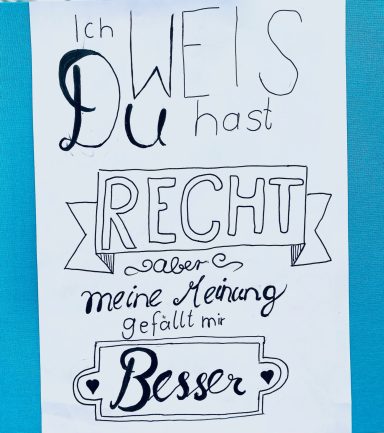 Ich WEIS
Du hast
RECHT
aber
meine Meinung
gefällt mir
Besser